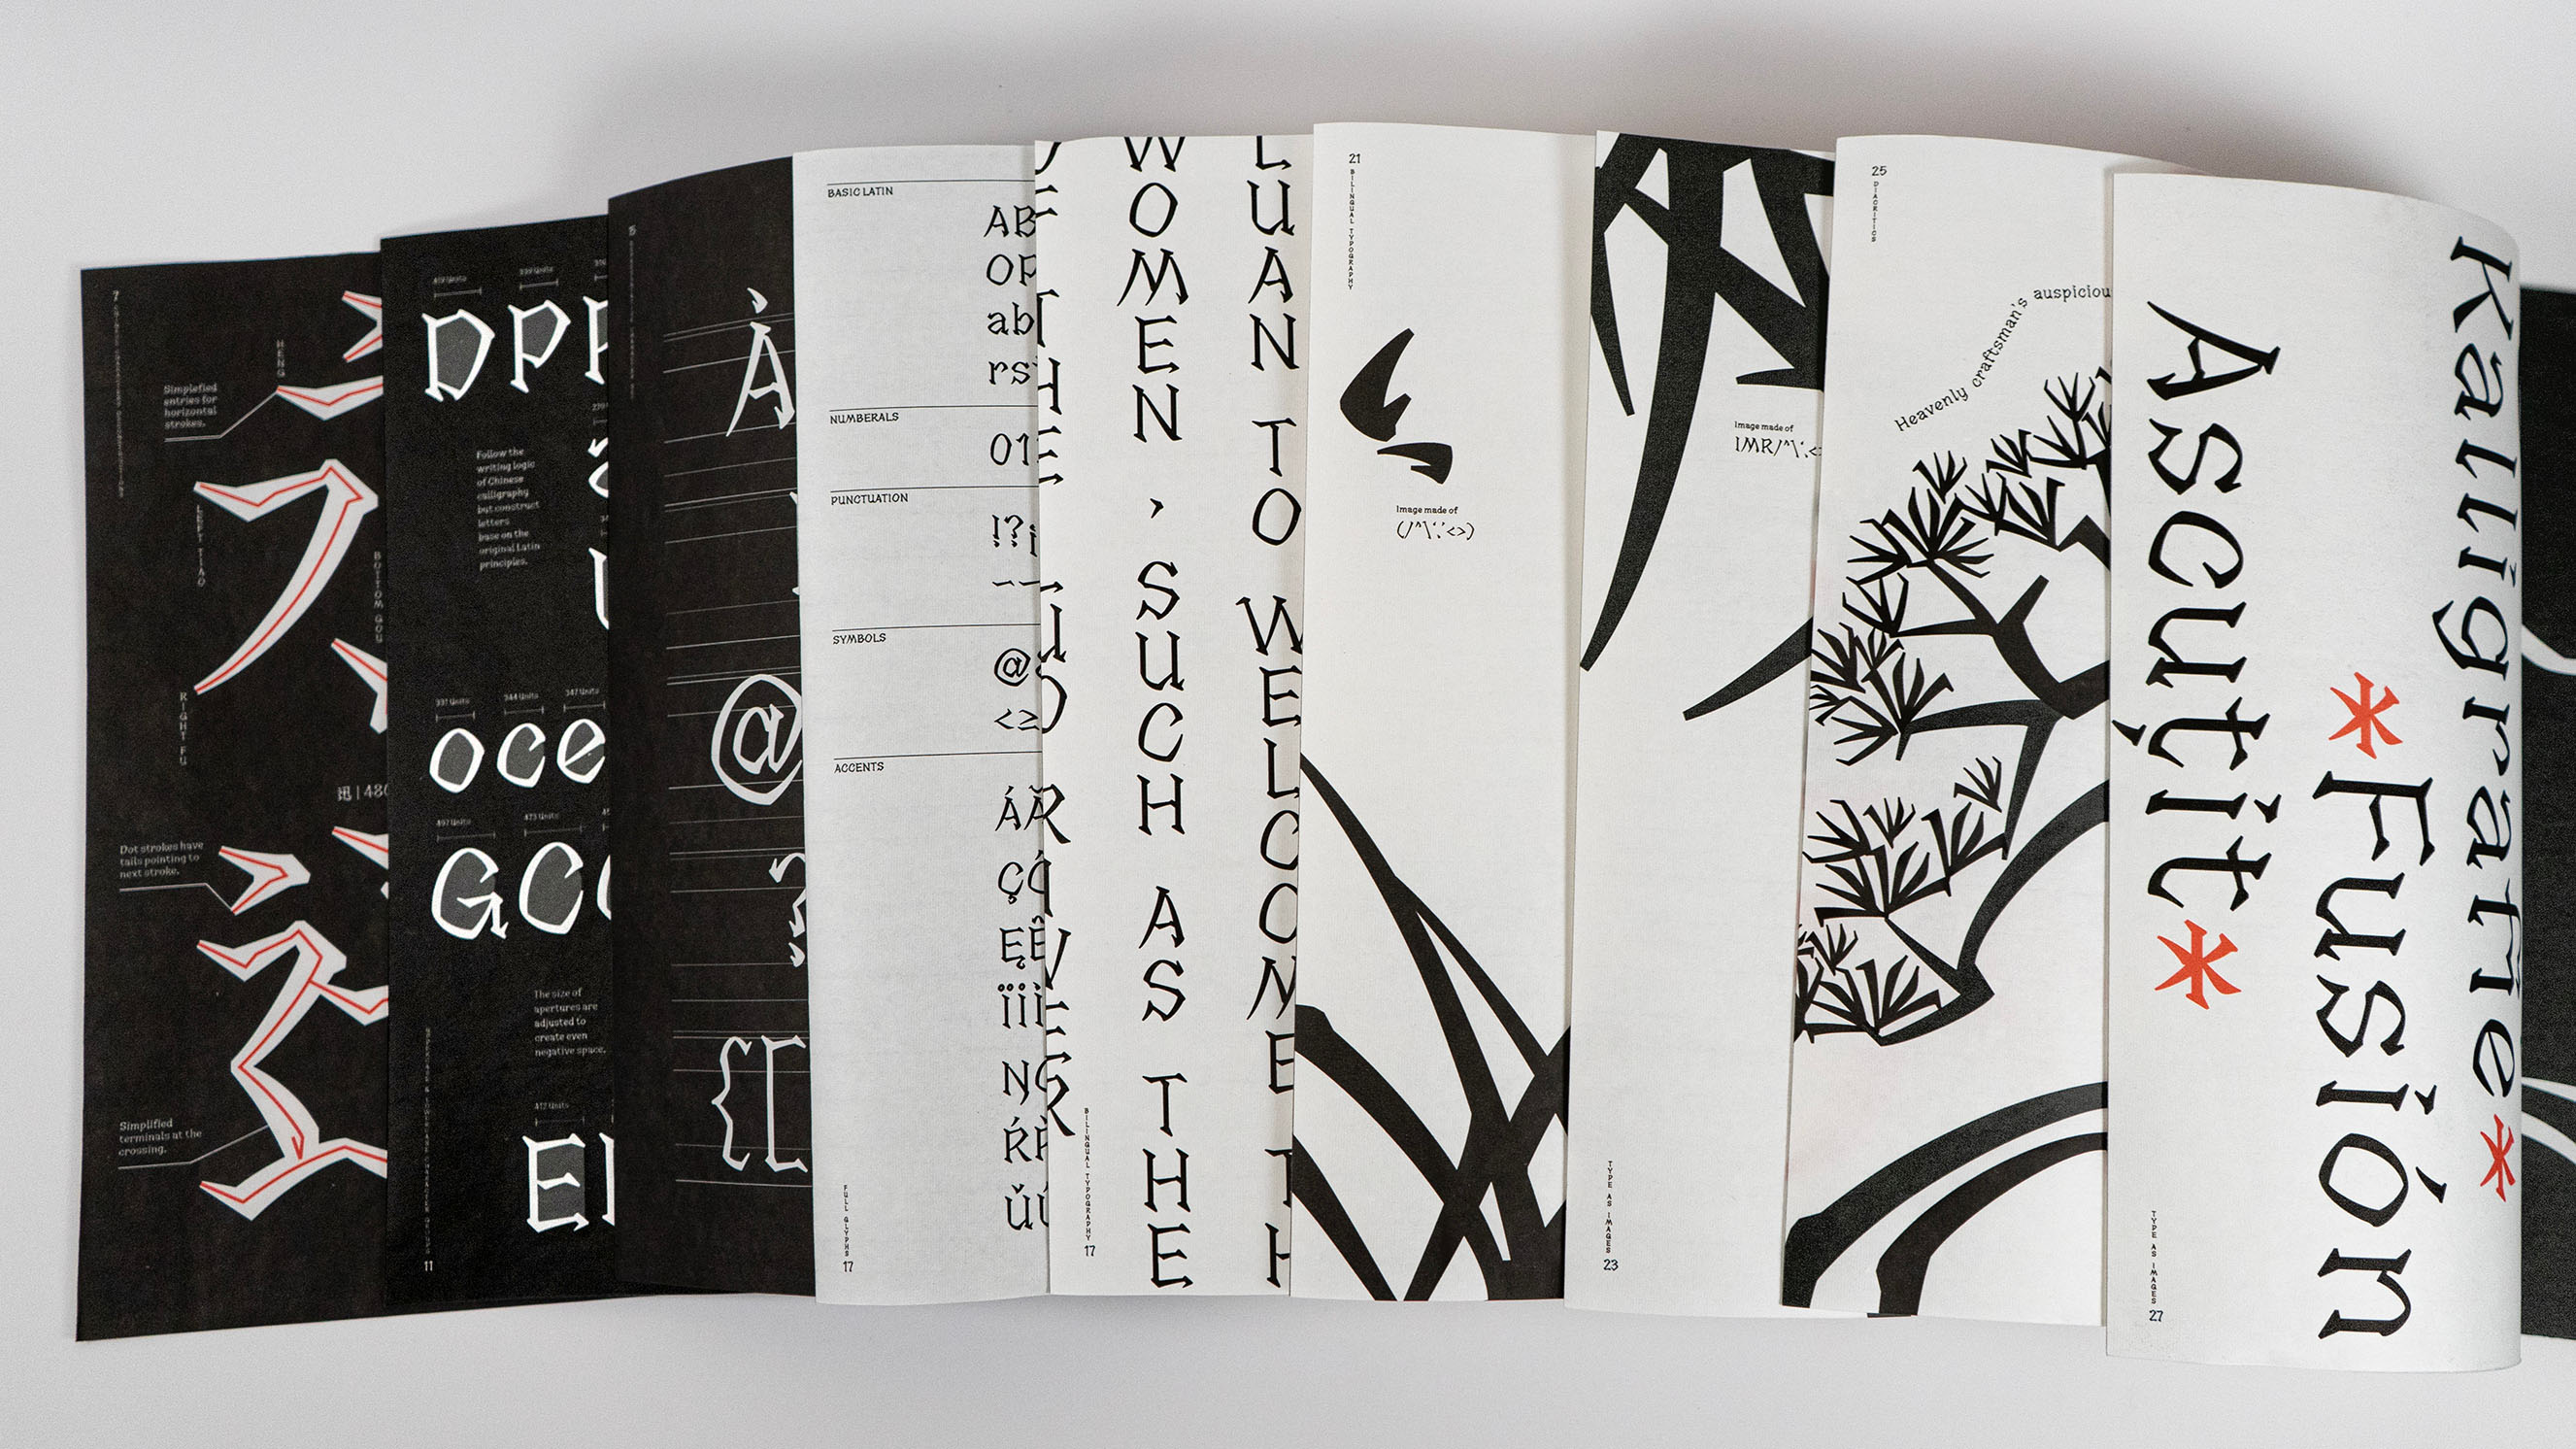 7
HENG
Simplefied
entries for
horizontal
strokes.
LEFT TIAO
BOTTOM GOU
RIGHT FU
迅 | 480
Dot strokes have
tails pointing to
next stroke.
Simplified
terminals at the
crossing.
419 Units
399 Units
DPF
Follow the
writing logic
of Chinese
calligraphy
but construct
letters
base on the
original Latin
principles.
331 Units
344 Units
347 Units
oce
497 Units
473 Units
GC
The size of
apertures are
adjusted to
create even
negative space.
412 Units
E
UPPERCASE & LOWERCASE CHARACTER GROUPS
11
15
À
@
?
{[
BASIC LATIN
AB
OP
ab
rs
NUMBERALS
01
PUNCTUATION
!?¡
SYMBOLS
@
<≥
ACCENTS
ÁÄ
ÇĆ
ĘÊ
ŅĞ
ŔŘ
ŭú
FULL GLYPHS
17
WOMEN, SUCH AS THE
LUAN TO WELCOME TH
BILINGUAL TYPOGRAPHY
17
21
BILINGUAL TYPOGRAPHY
Image made of
(/^\´.<>)
Image made of
IMR/^\´.<
TYPE AS IMAGES
23
25
DIACRITICS
Heavenly craftsman's auspiciou
Ascuțit*
*Fusión
Kalligrafie*
TYPE AS IMAGES
27